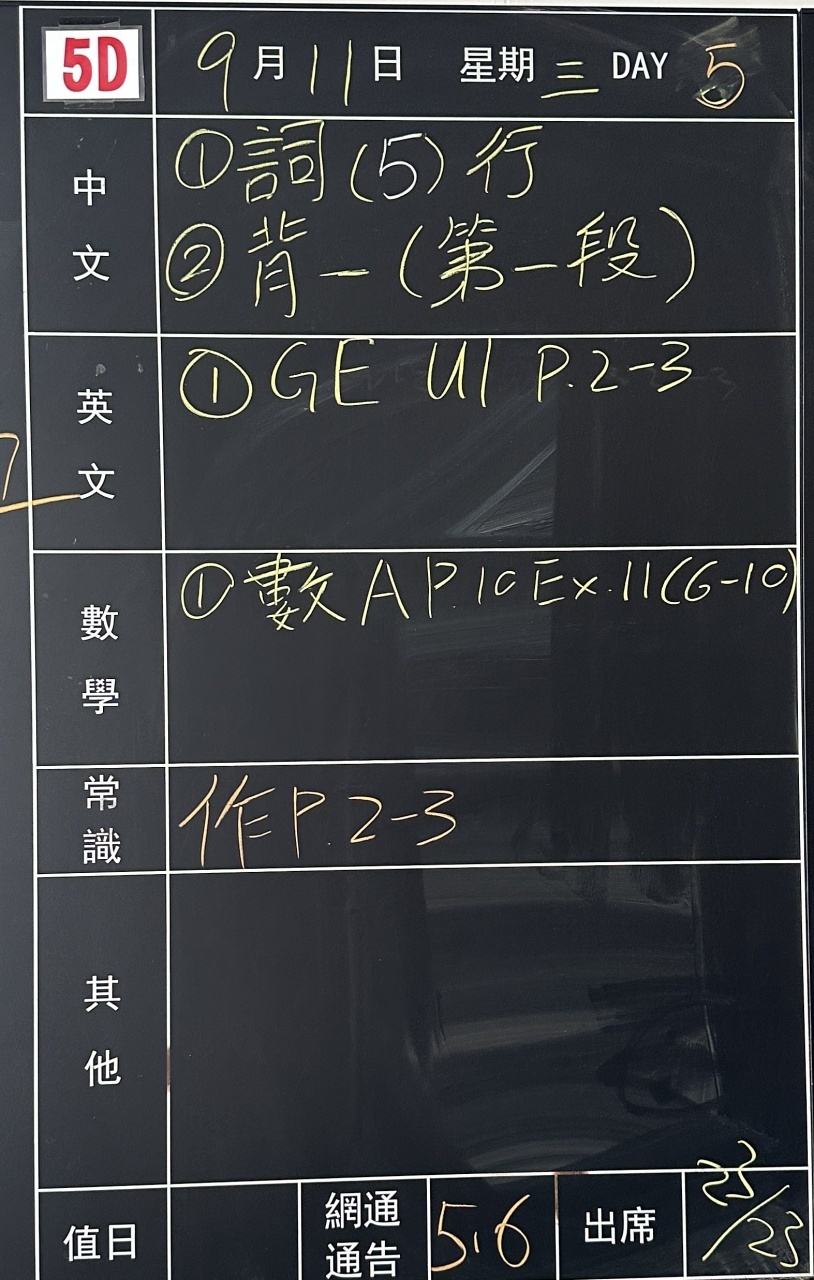 5D 9月11日 星期三 DAY 5
中文
①詞(5)行
②背一(第一段)
英文
①GE U1 P.2-3
數學
①數A P.10 Ex.11(6-10)
常識
作P.2-3
其他
值日
網通通告 5,6
出席 23/23